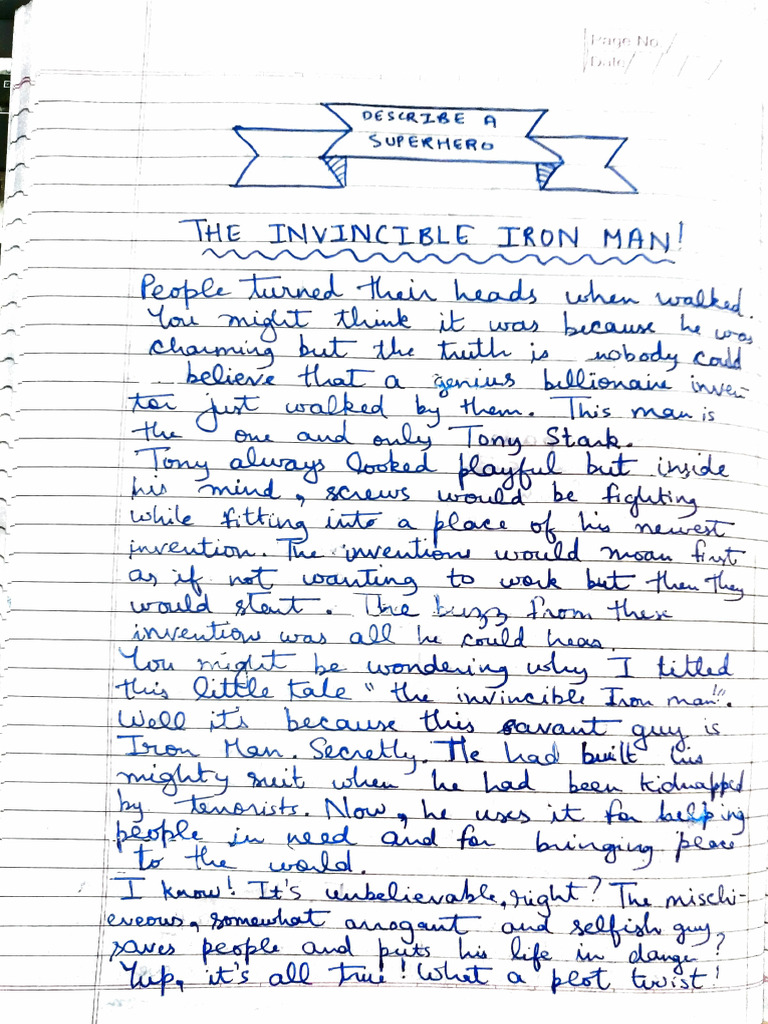 Page No.
Date
DESCRIBE A
SUPERHERO
THE INVINCIBLE IRON MAN!
People turned their heads when walked.
You might think it was because he was
charming but the truth is nobody could
believe that a genius billionaire inven-
tor just walked by them. This man is
the one and only Tony Stark.
Tony always looked playful but inside
his mind, screws would be fighting
while fitting into a place of his newest
invention. The inventions would moan first
as if not wanting to work but then they
would start. The buzz from these
invention was all he could hear.
You might be wondering why I titled
this little tale "the invincible Iron man!!".
Well it's because this savant guy is
Iron Man. Secretly. He had built his
mighty suit when he had been kidnapped
by terrorists. Now, he uses it for helping
people in need and for bringing peace
to the world.
I know! It's unbelievable, right? The mischi-
eveous, somewhat arrogant and selfish guy
saves people and puts his life in danger?
Yup, it's all true! What a plot twist!